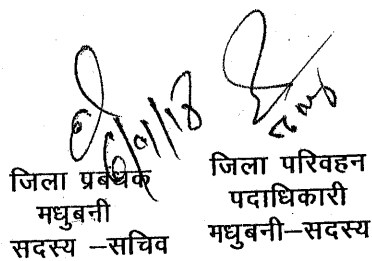 जिला प्रबंधक
मधुबनी
सदस्य –सचिव
जिला परिवहन
पदाधिकारी
मधुबनी–सदस्य